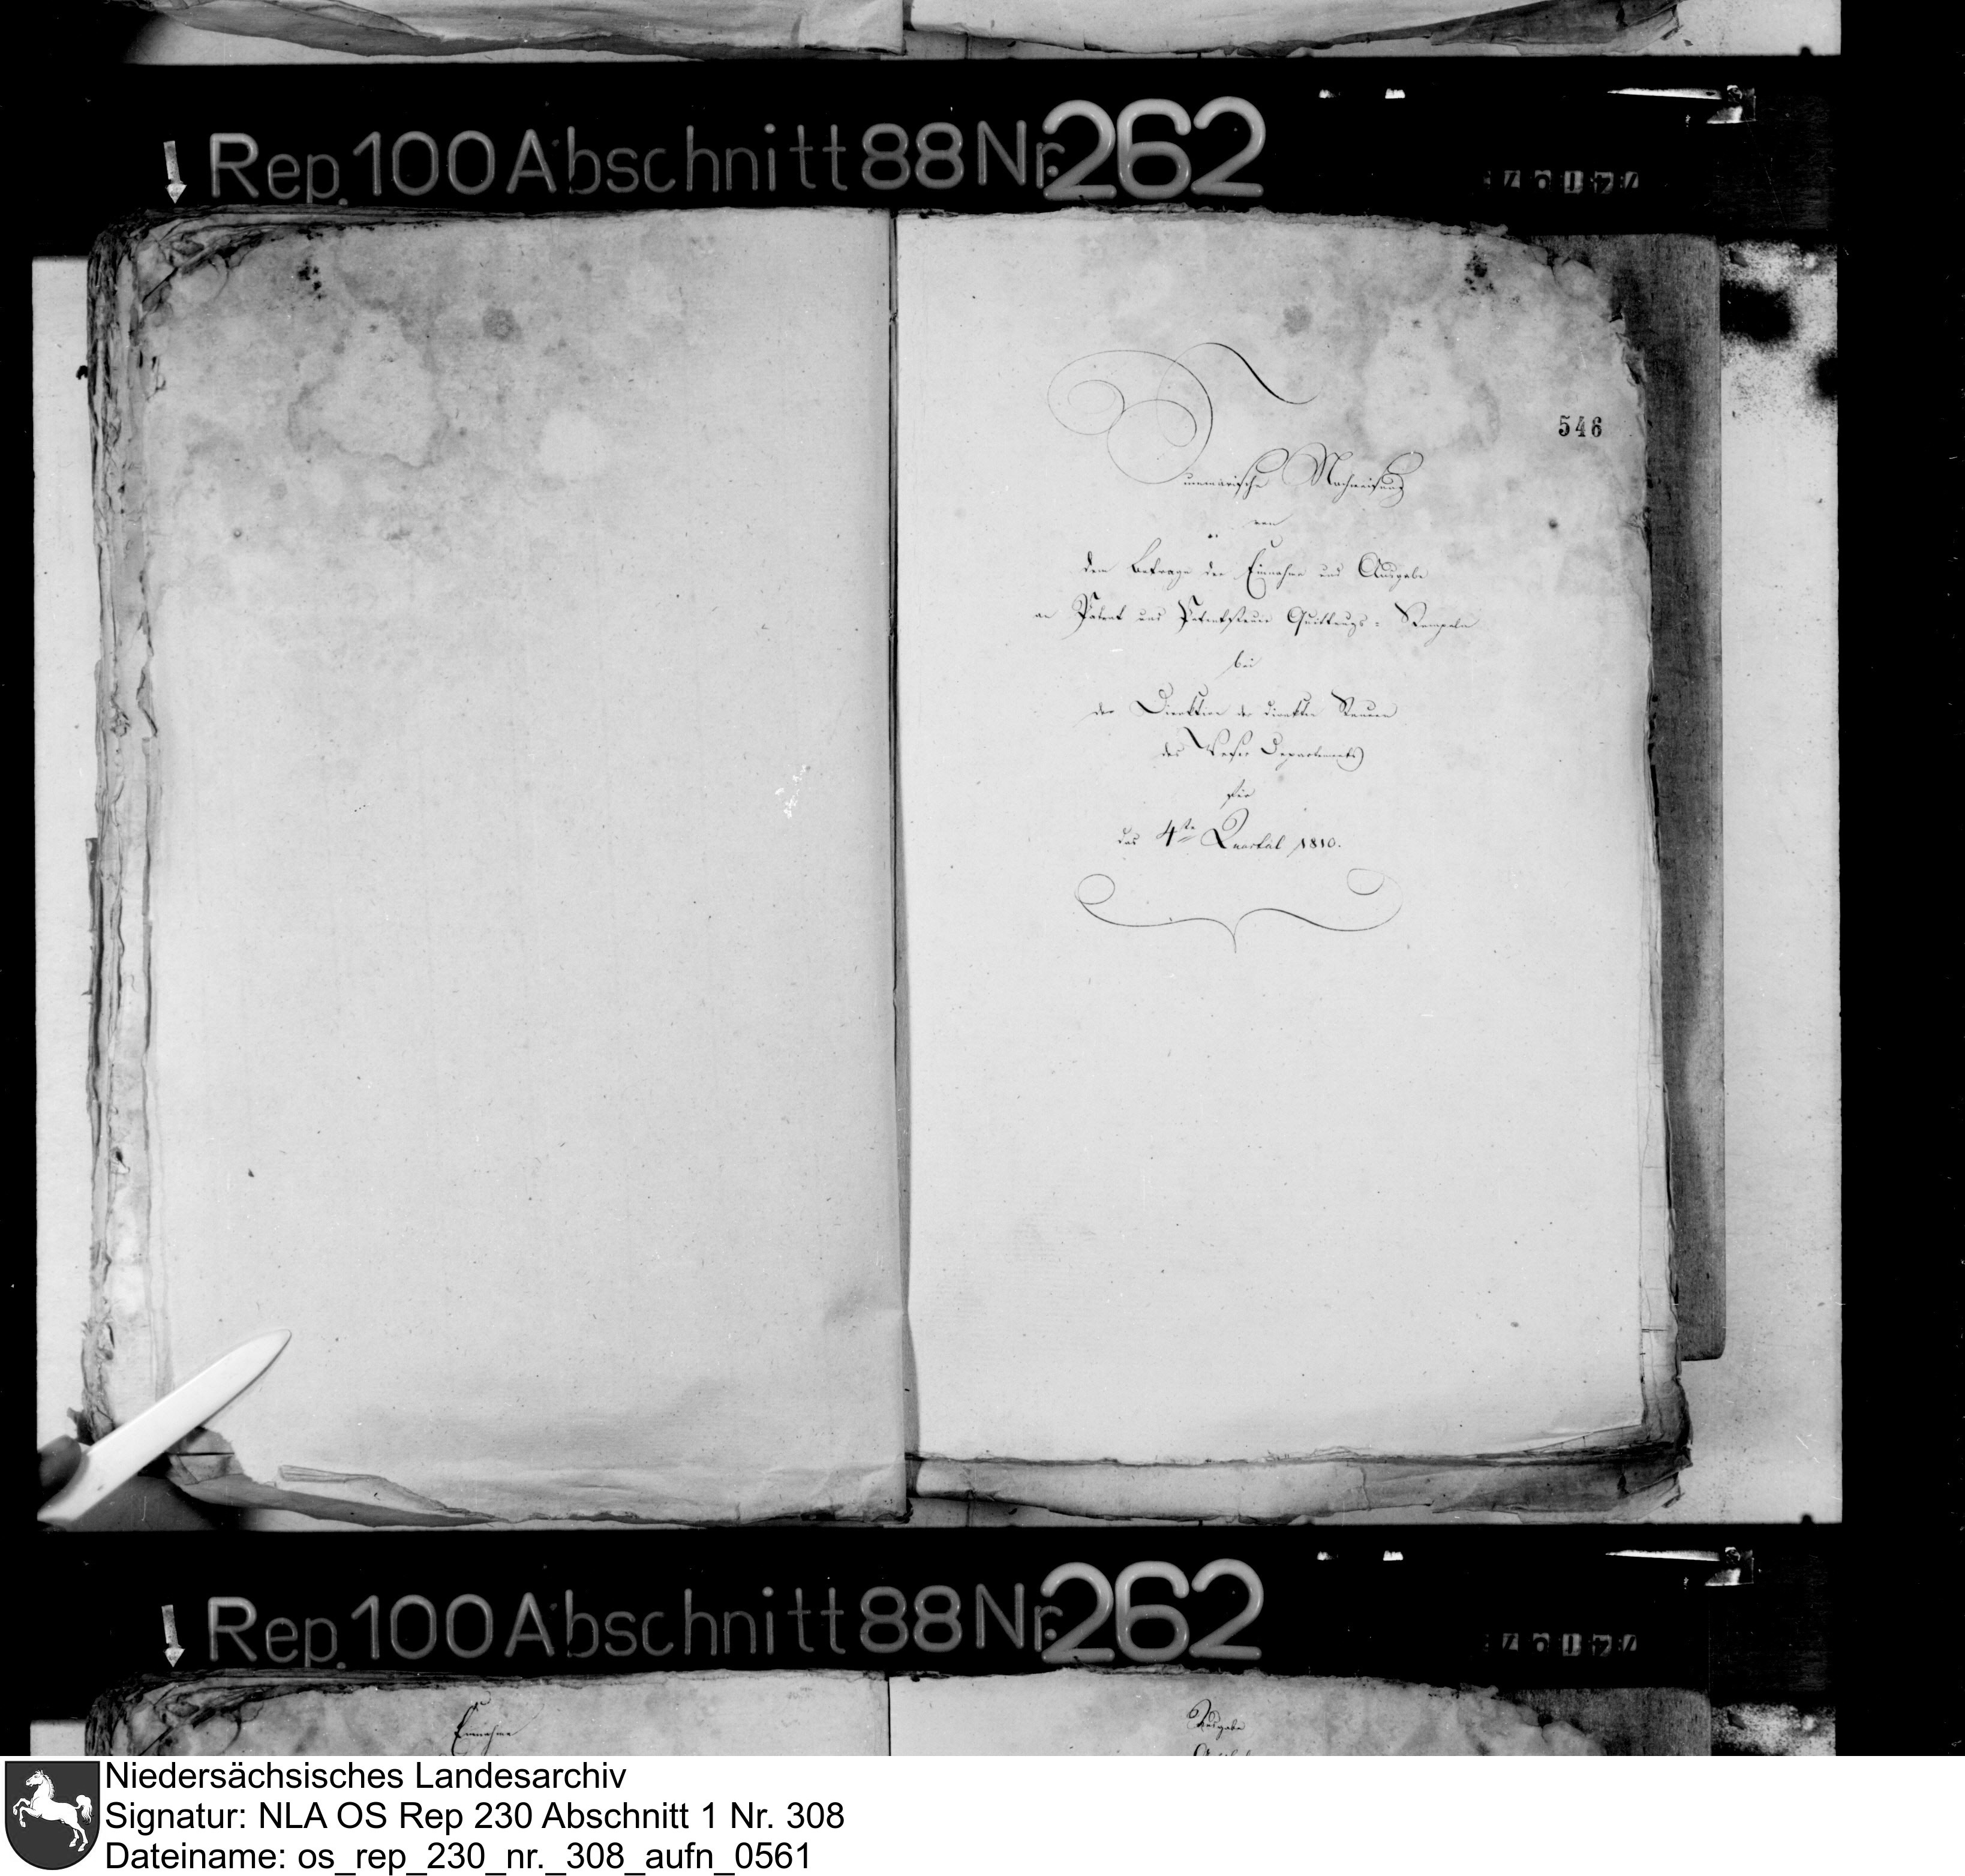 Rep. 100 Abschnitt 88 Nr. 262
546
Summarische Nachweisung
von
dem Betrage der Einnahme und Ausgabe
an Patent und Patentsteuer Quittungs-Stempeln
bei
der Direktion der direkten Steuern
des Weser Departements
für
das 4te Quartal 1810.
Rep. 100 Abschnitt 88 Nr. 262
Einnahme
Ausgabe
Niedersächsisches Landesarchiv
Signatur: NLA OS Rep 230 Abschnitt 1 Nr. 308
Dateiname: os_rep_230_nr._308_aufn_0561